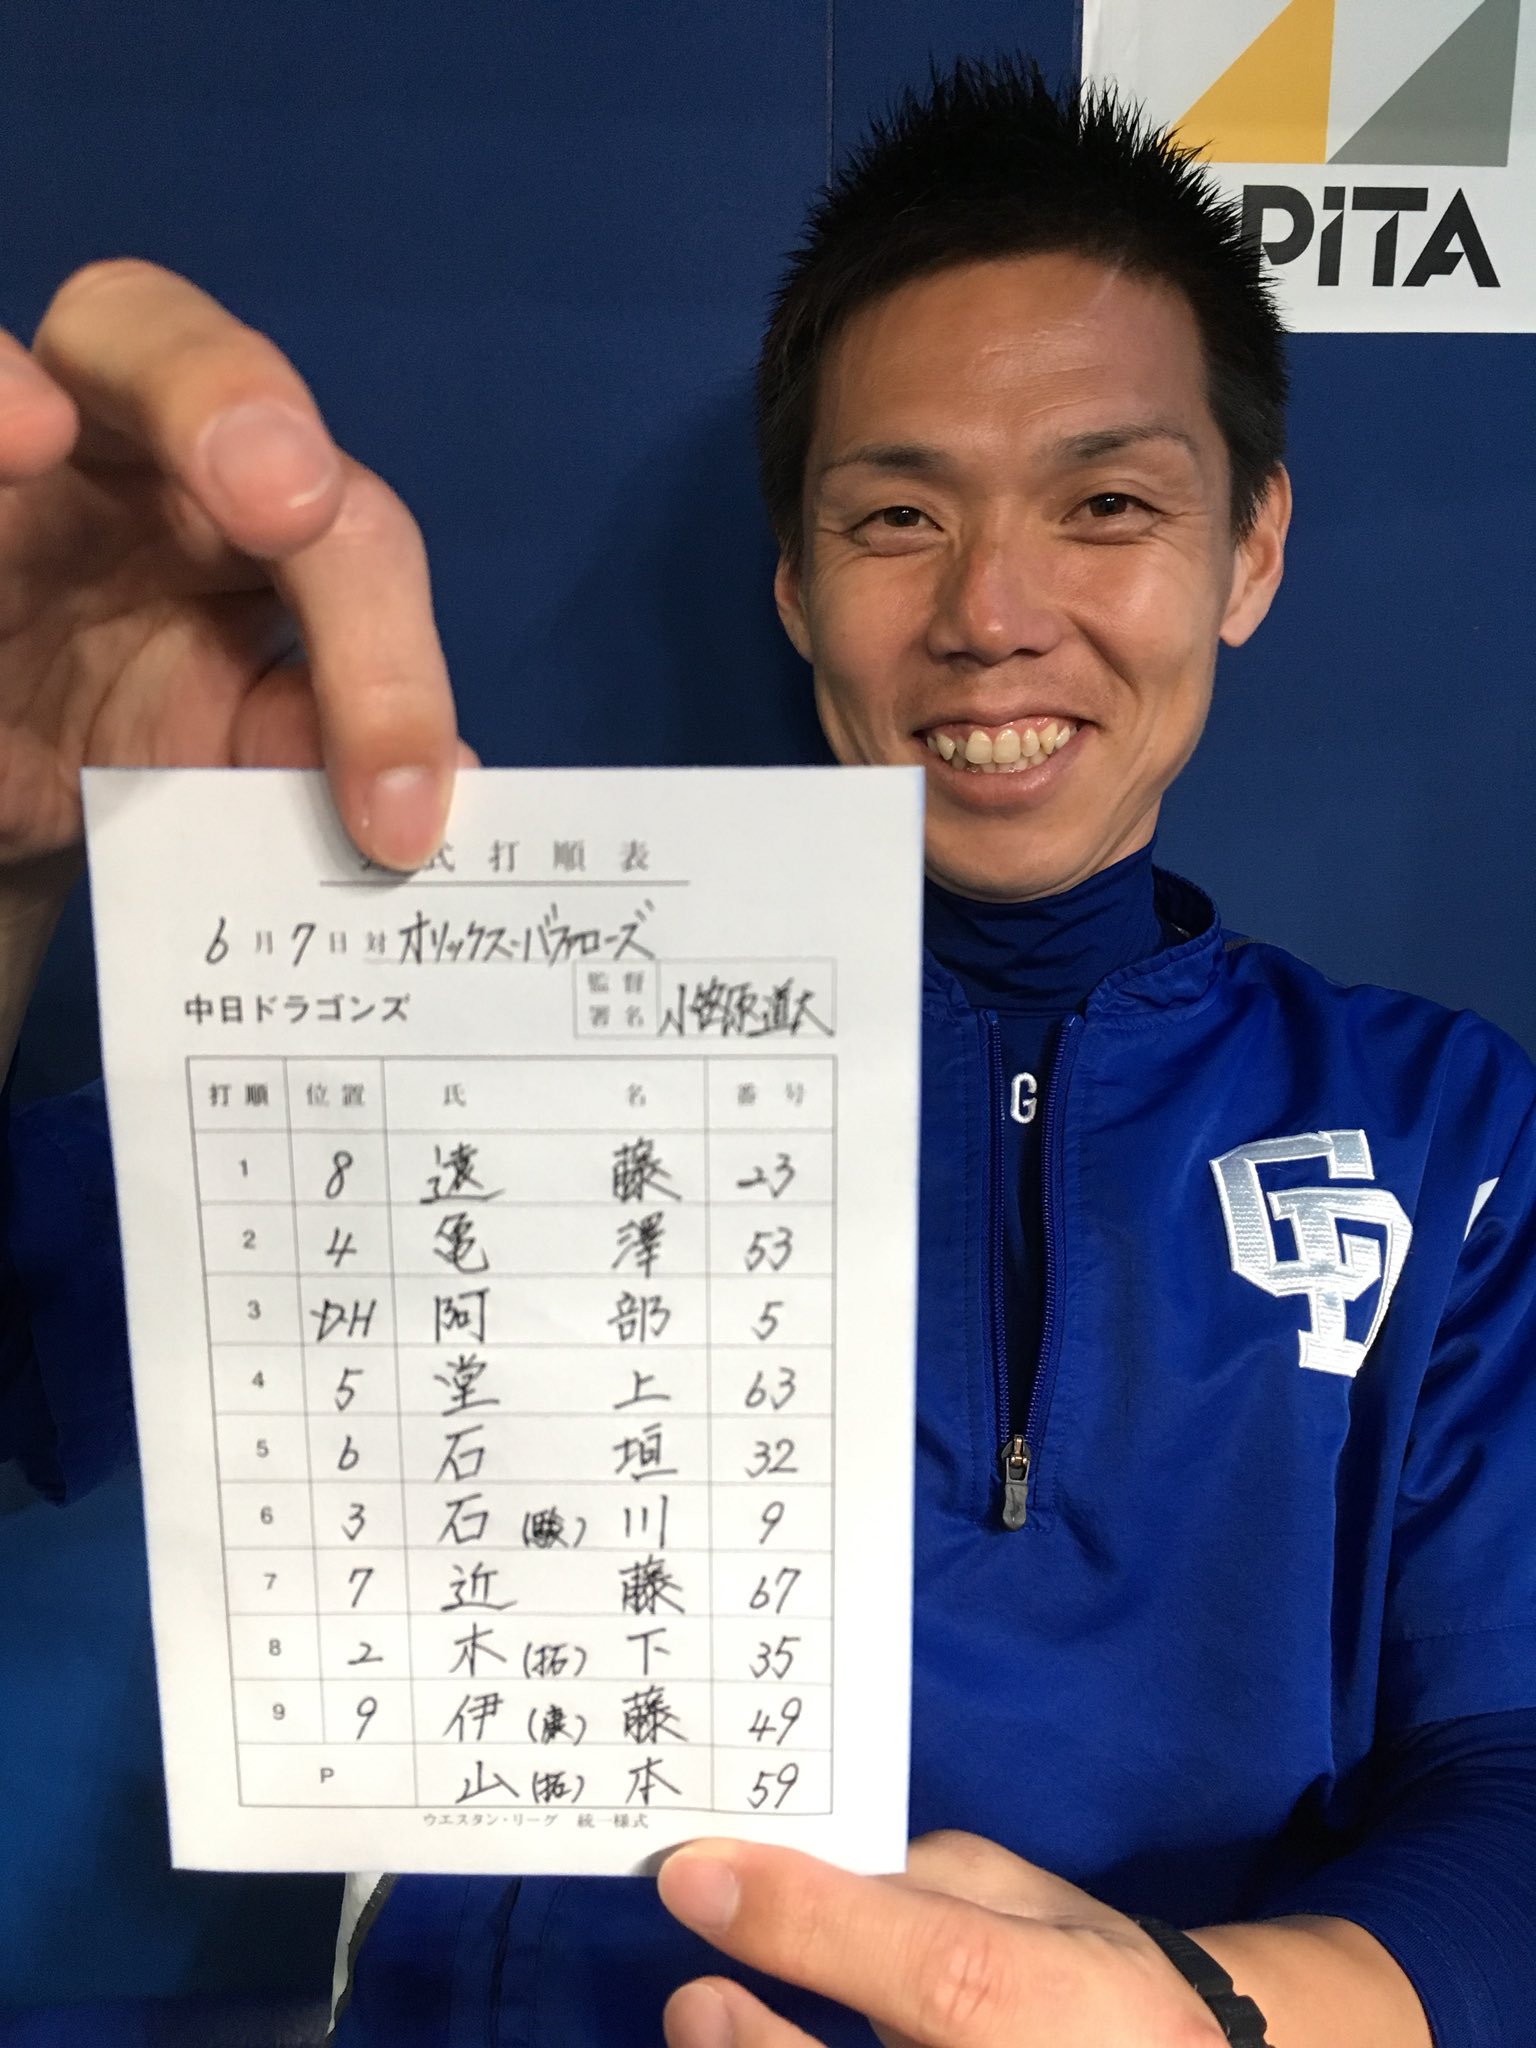 PiTA
式打順表
6月7日 対 オリックス・バファローズ
中日ドラゴンズ 監督署名 小笠原道大
打順 位置 氏名 番号
1 8 遠藤 23
2 4 亀澤 53
3 DH 阿部 5
4 5 堂上 63
5 6 石垣 32
6 3 石(駿)川 9
7 7 近藤 67
8 2 木(拓)下 35
9 9 伊(康)藤 49
P 山(拓)本 59
ウエスタン・リーグ 統一様式
G
CD